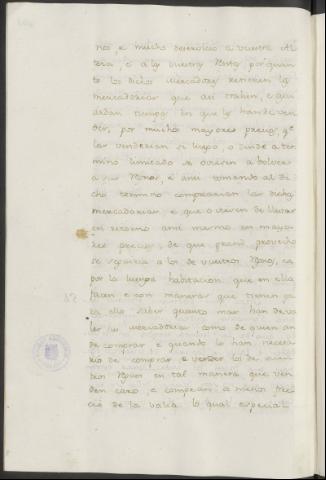 nos, e mucho deservicio a vuestra Al
teza, e a los vuestros Reynos, por quan
to los dichos Mercadores retienen las
mercadorias que asi trahen, e gua
dan tiempo en que las han de ven
der, por mucho mayores precios, q.e
las venderian si luego, o dende a ter
mino limitado se oviesen a bolver
a sus Reynos, e ansi tomando el di
cho termino comprarian las dichas
mercadorias, e que oviesen de llevar
en retorno ansi mesmo en mayo
res precios, de que grand provecho
se seguiria a los de vuestros Reynos, ca
por la luenga habitacion, que en ellos
facen e con maneras que tienen pa
ra ello saber quanto mas han de va
ler sus mercadorias como de quien an
de comprar e quando lo han necesa
rio de comprar e vender los de vues
tros Reynos en tal manera que ven
den caro, e compran a menos pre
cio de la valia, lo qual especial